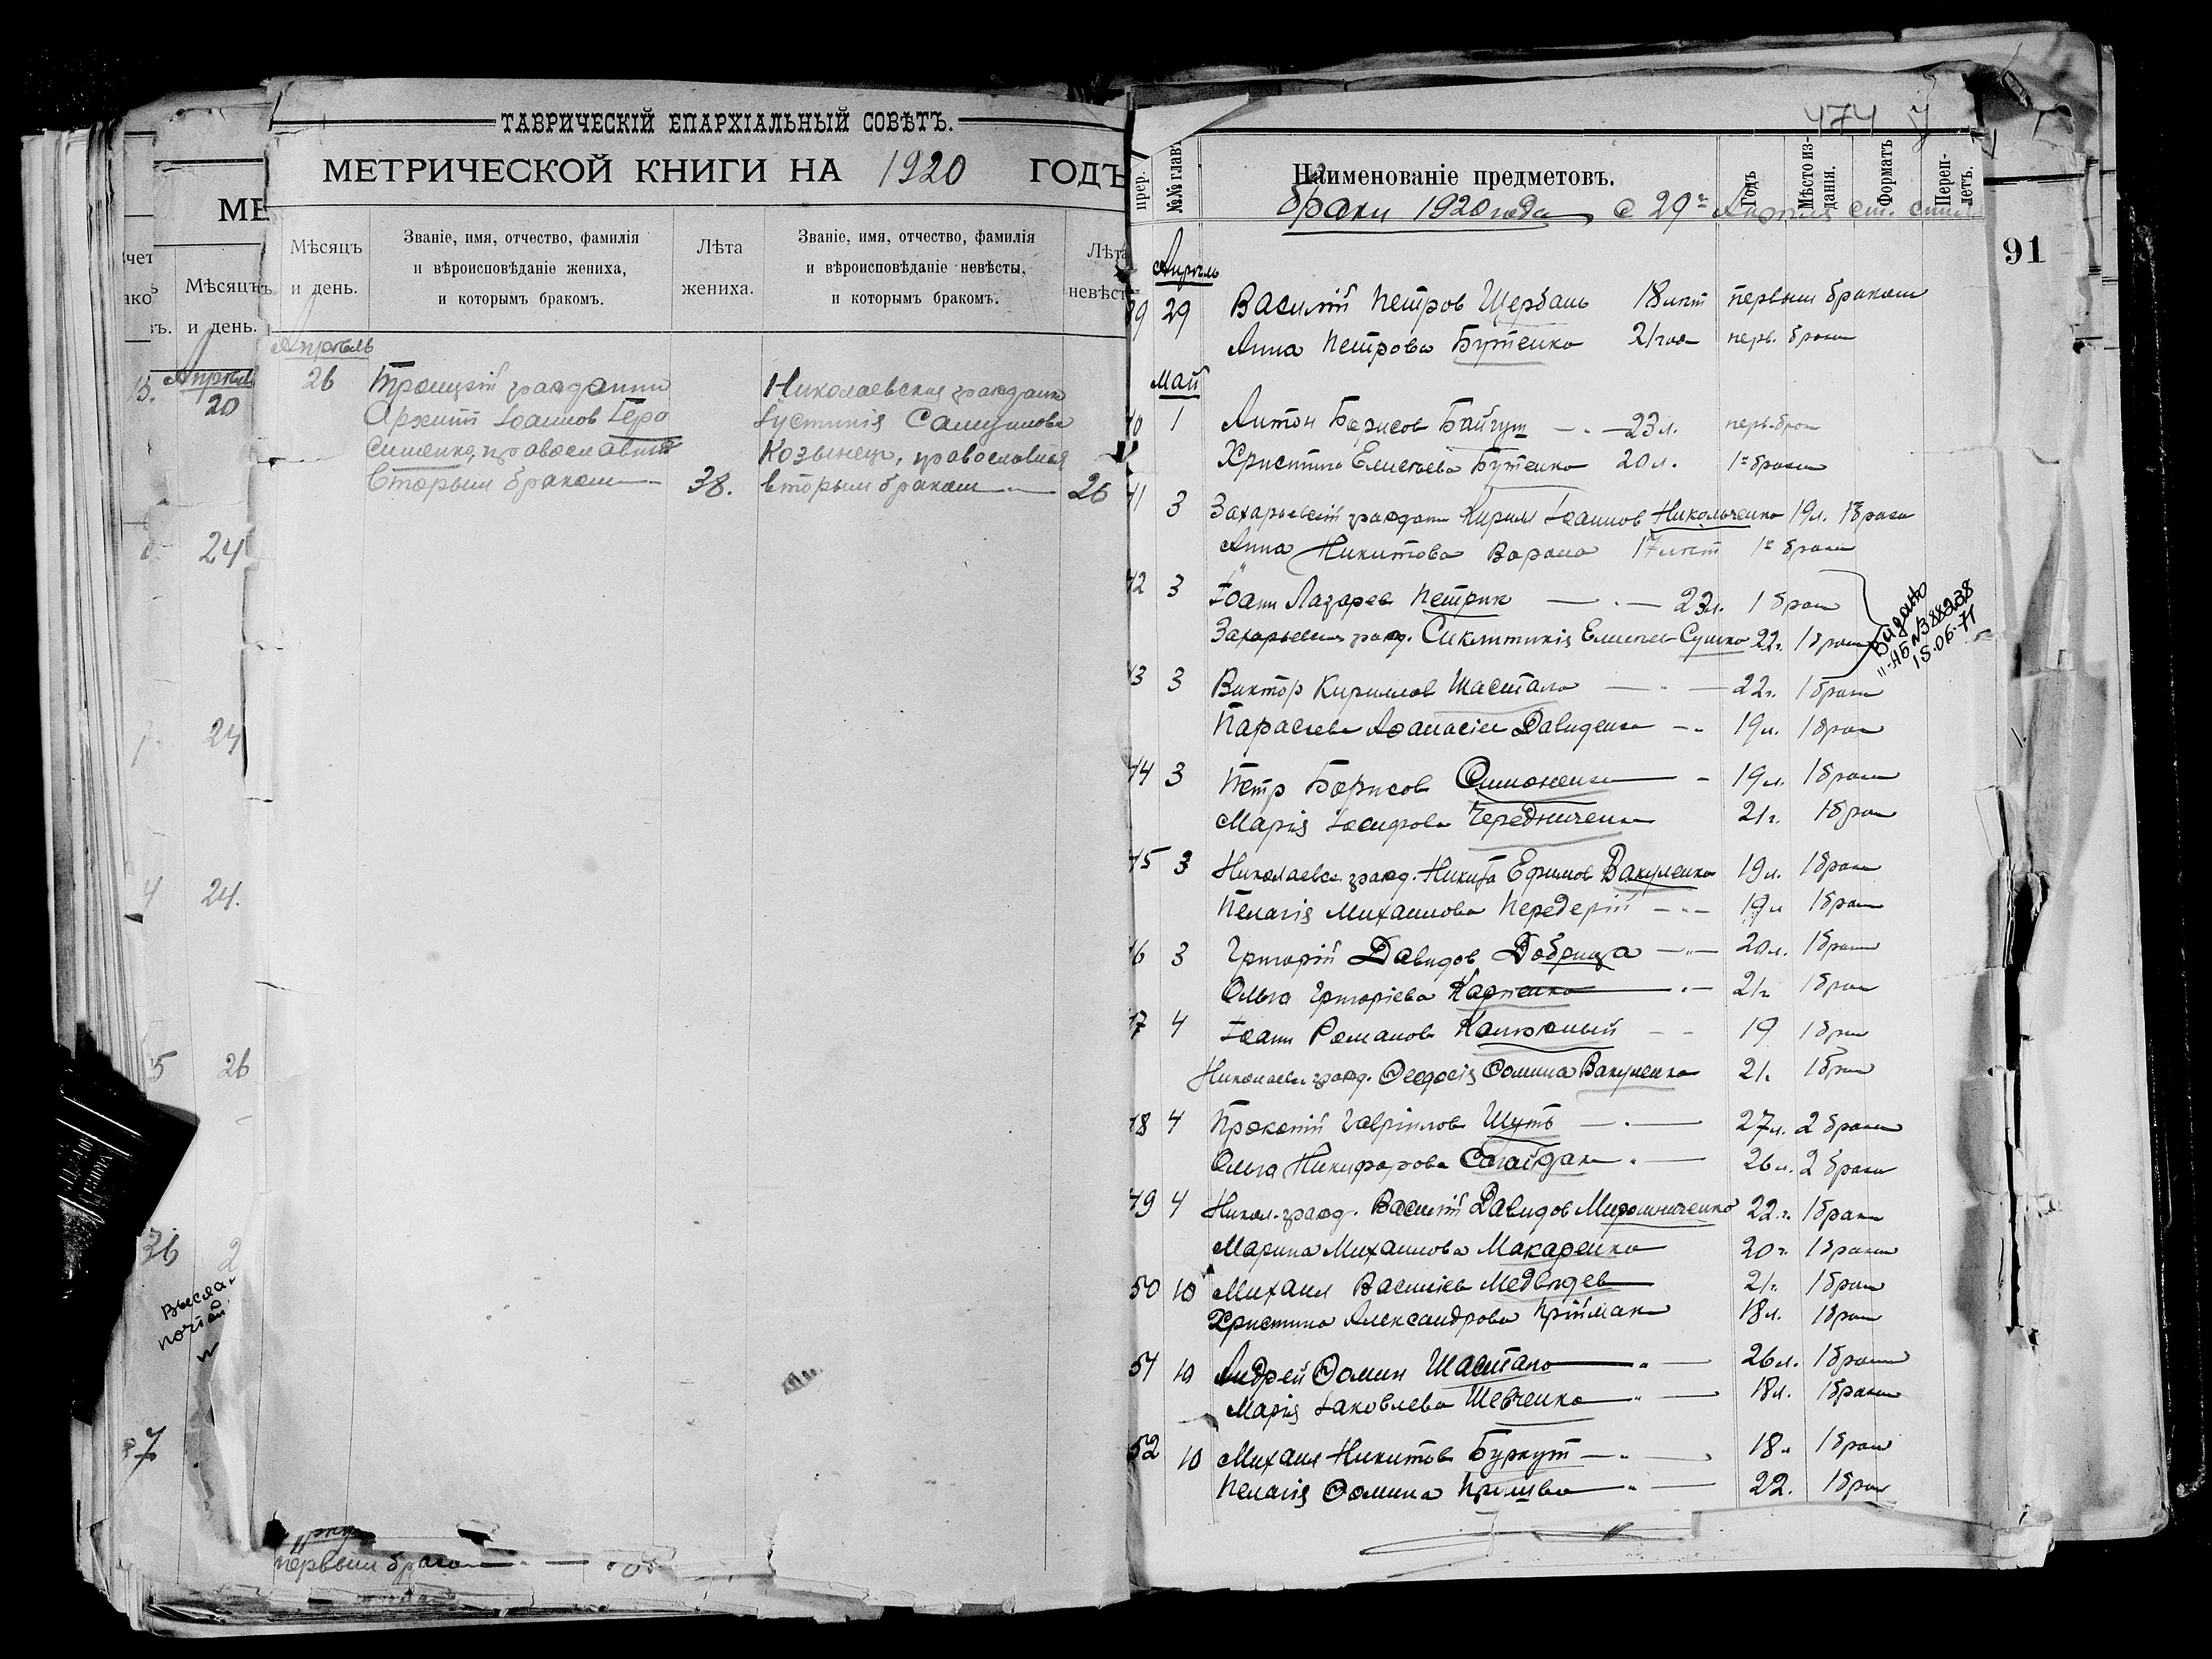 ТАВРИЧЕСКІЙ ЕПАРХІАЛЬНЫЙ СОВѢТЪ.
МЕТРИЧЕСКОЙ КНИГИ НА 1920 ГОДЪ
Мѣсяцъ и день.
Званіе, имя, отчество, фамилія и вѣроисповѣданіе жениха, и которымъ бракомъ.
Лѣта жениха.
Званіе, имя, отчество, фамилія и вѣроисповѣданіе невѣсты, и которымъ бракомъ.
Лѣта невѣст
Апрѣль
26 Троицкій гражданин Николаевская гражданка
Архипп Іоаннов Гера Іустинія
сименко, православный Козынец, православная
вторым браком 38. вторым браком 26
первым брако
МЕ
Мѣсяцъ
и день.
Апрѣл
20
24
24
24.
26
Высла
почтой
474
прер.
№№ главъ
Наименованіе предметовъ.
Годъ
Мѣсто из-
данія.
Форматъ
Переп-
летъ.
браки 1920 года с 29 Апрѣля ст. стиля
91
Апрѣль
39 29 Василій Петров Щербань 18 лѣт первым браком
Анна Петрова Бутенко 21 год перв. браком
Май
40 1 Антон Борисов Байгуш 23 л. перв. брак
Христина Елисеева Бутенко 20 л. 1м браком
41 3 Захарьевскій граждан Кирилл Іоаннов Никольченко 19 л. 1 брак
Анна Никитова Ворона 17 лѣт 1м браком
42 3 Іоанн Лазарев Петрик 23 л. 1 брак
Захарьевская гражд. Синклитикія Елисеев Сушко 22 г. 1 брак
Видано
ІІ-АБ №388238
15.06.71
43 3 Виктор Кириллов Шастало 22 г. 1 брак
Параскева Аѳанасіев Давиденко 19 л. 1 брак
44 3 Петр Борисов Симоненко 19 л. 1 брак
Марія Іосифова Чередниченко 21 г. 1 брак
45 3 Николаевск. гражд. Никита Ефимов Вакуленко 19 л. 1 брак
Пелагія Михаилова Передерій 19 л 1 брак
46 3 Григорій Давидов Добрица 20 л. 1 брак
Ольга Григоріева Карпенко 21 г. 1 брак
47 4 Іоанн Романов Калюжный 19 1 брак
Николаевс. гражд. Ѳеодосія Ѳомина Вакуленко 21 г. 1 брак
48 4 Прокопій Гавріилов Шуть 27 л. 2 брак
Ольга Никифорова Сагайдак 26 л. 2 брак
49 4 Никол. гражд. Василій Давидов Мирошниченко 22 г. 1 брак
Марина Михаилова Макаренко 20 г. 1 брак
50 10 Михаил Василіев Медвѣдев 21 г. 1 брак
Христина Александрова Пріймак 18 л. 1 брак
51 10 Андрей Ѳомин Шастало 26 л. 1 брак
Марія Іаковлева Шевченко 18 л. 1 брак
52 10 Михаил Никитов Буркут 18 л 1 брак
Пелагія Ѳомина 22. 1 брак